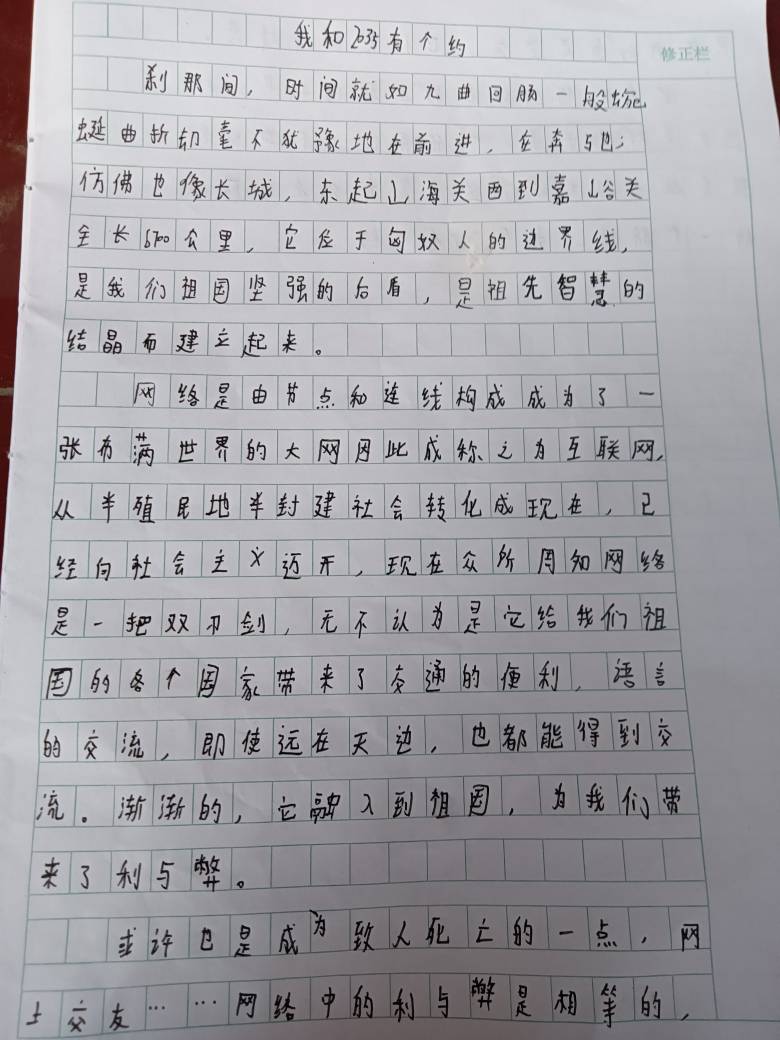 我和2035有个约
修正栏
刹那间，时间就如九曲回肠一般蜿
蜒曲折却毫不犹豫地在前进，在奔驰；
仿佛也像长城，东起山海关西到嘉峪关
全长6700公里，它位于匈奴人的边界线，
是我们祖国坚强的后盾，是祖先智慧的
结晶而建立起来。
网络是由节点和连线构成成为了一
张布满世界的大网因此成称之为互联网，
从半殖民地半封建社会转化成现在，已
经向社会主义迈开，现在众所周知网络
是一把双刃剑，无不认为是它给我们祖
国的各个国家带来了交通的便利，语言
的交流，即使远在天边，也都能得到交
流。渐渐的，它融入到祖国，为我们带
来了利与弊。
或许也是成为致人死亡的一点，网
上交友……网络中的利与弊是相等的，